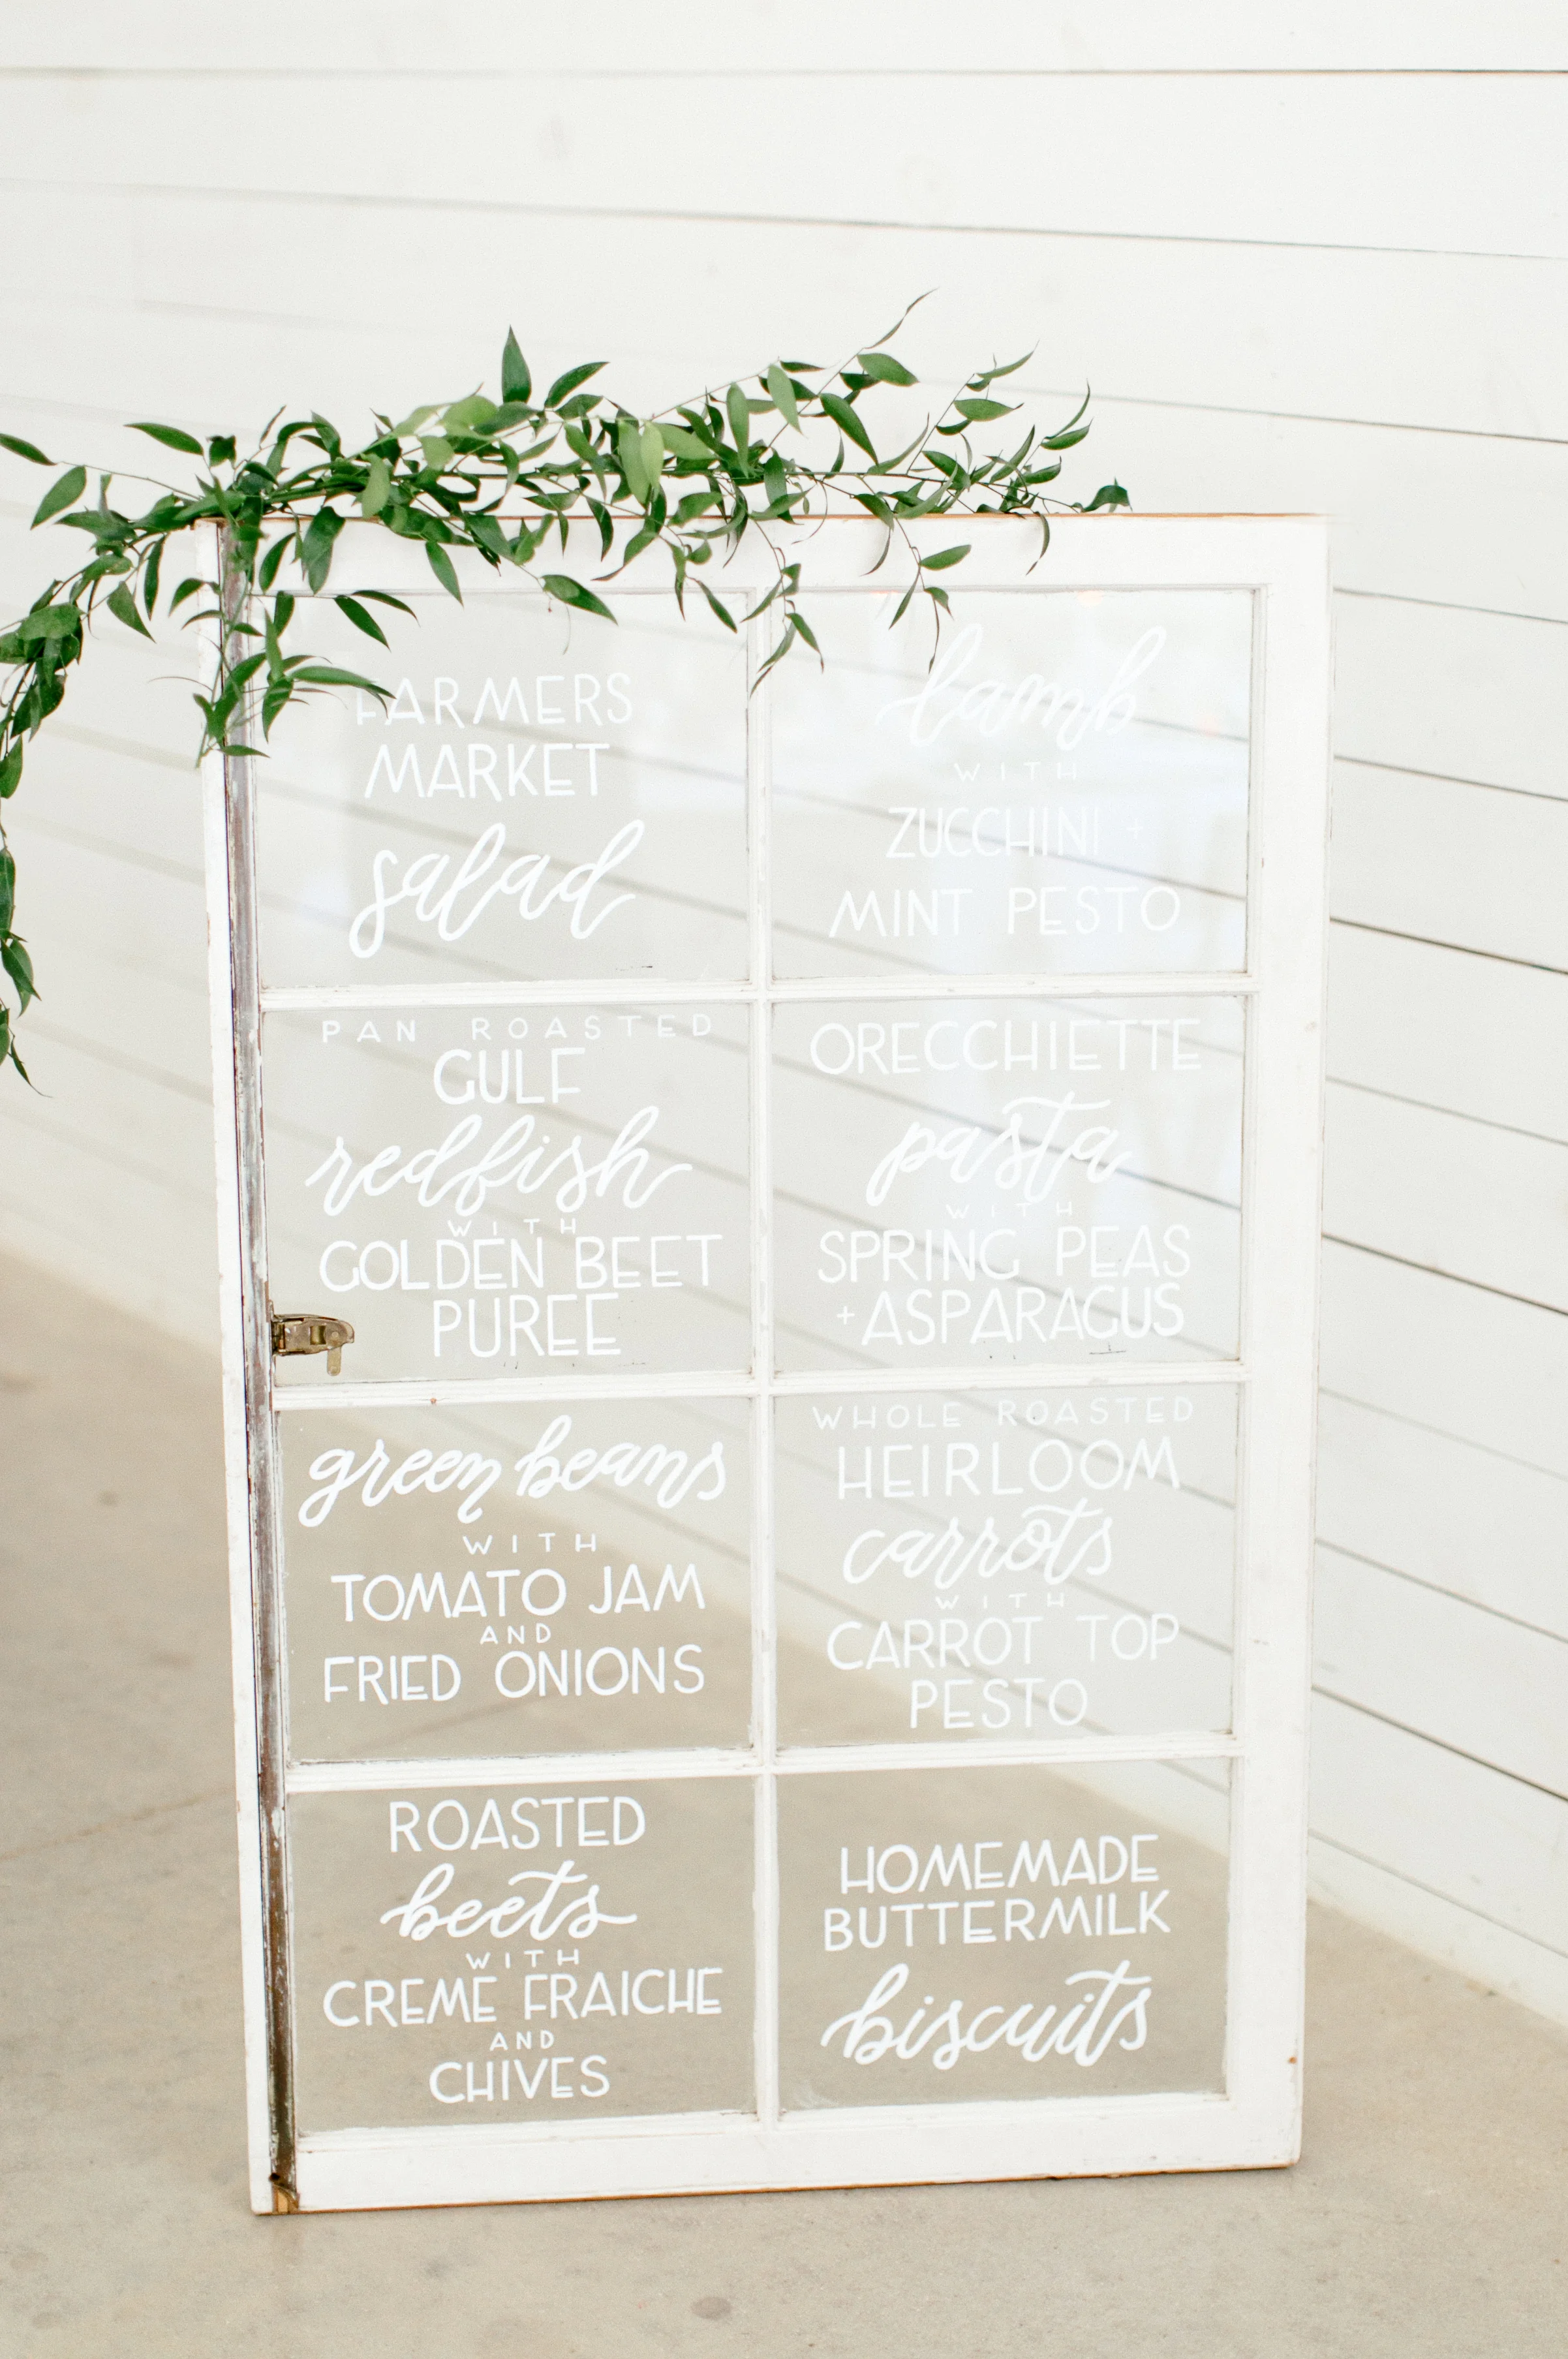 FARMERS
MARKET
salad
lamb
WITH
ZUCCHINI +
MINT PESTO
PAN ROASTED
GULF
redfish
WITH
GOLDEN BEET
PUREE
ORECCHIETTE
pasta
WITH
SPRING PEAS
+ ASPARAGUS
green beans
WITH
TOMATO JAM
AND
FRIED ONIONS
WHOLE ROASTED
HEIRLOOM
carrots
WITH
CARROT TOP
PESTO
ROASTED
beets
WITH
CREME FRAICHE
AND
CHIVES
HOMEMADE
BUTTERMILK
biscuits